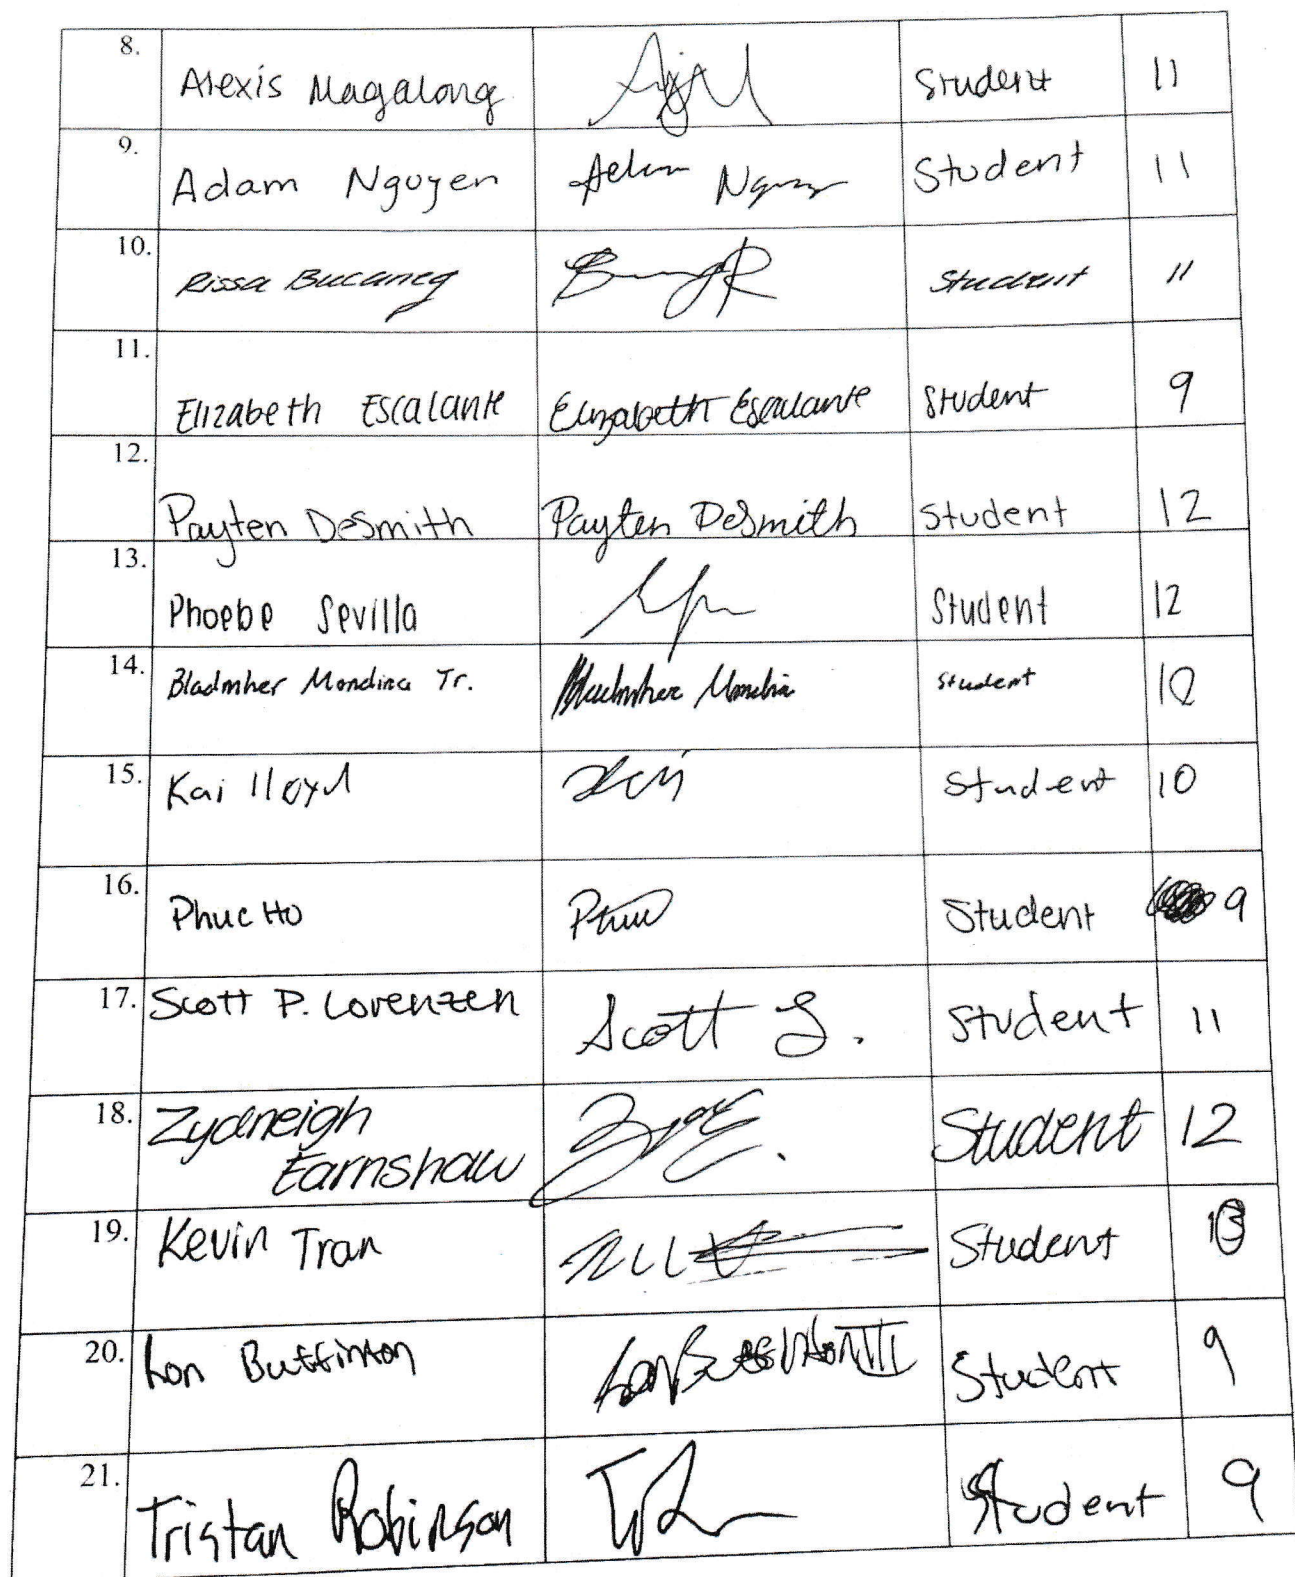 8. Alexis Magalong Student 11
9. Adam Nguyen Adam Nguyen Student 11
10. Rissa Bucaneg Student 11
11. Elizabeth Escalante Elizabeth Escalante Student 9
12. Payten DeSmith Payten DeSmith Student 12
13. Phoebe Sevilla Student 12
14. Bladmher Mondina Jr. Student
15. Kai lloyd Kai Student 10
16. Phuc Ho Phuc Student 9
17. Scott P. Lorenzen Scott L. Student 11
18. Zydneigh Student 12
Earnshaw
19. Kevin Tran Student
20. Lon Buffinton Student 9
21. Tristan Robinson Student 9